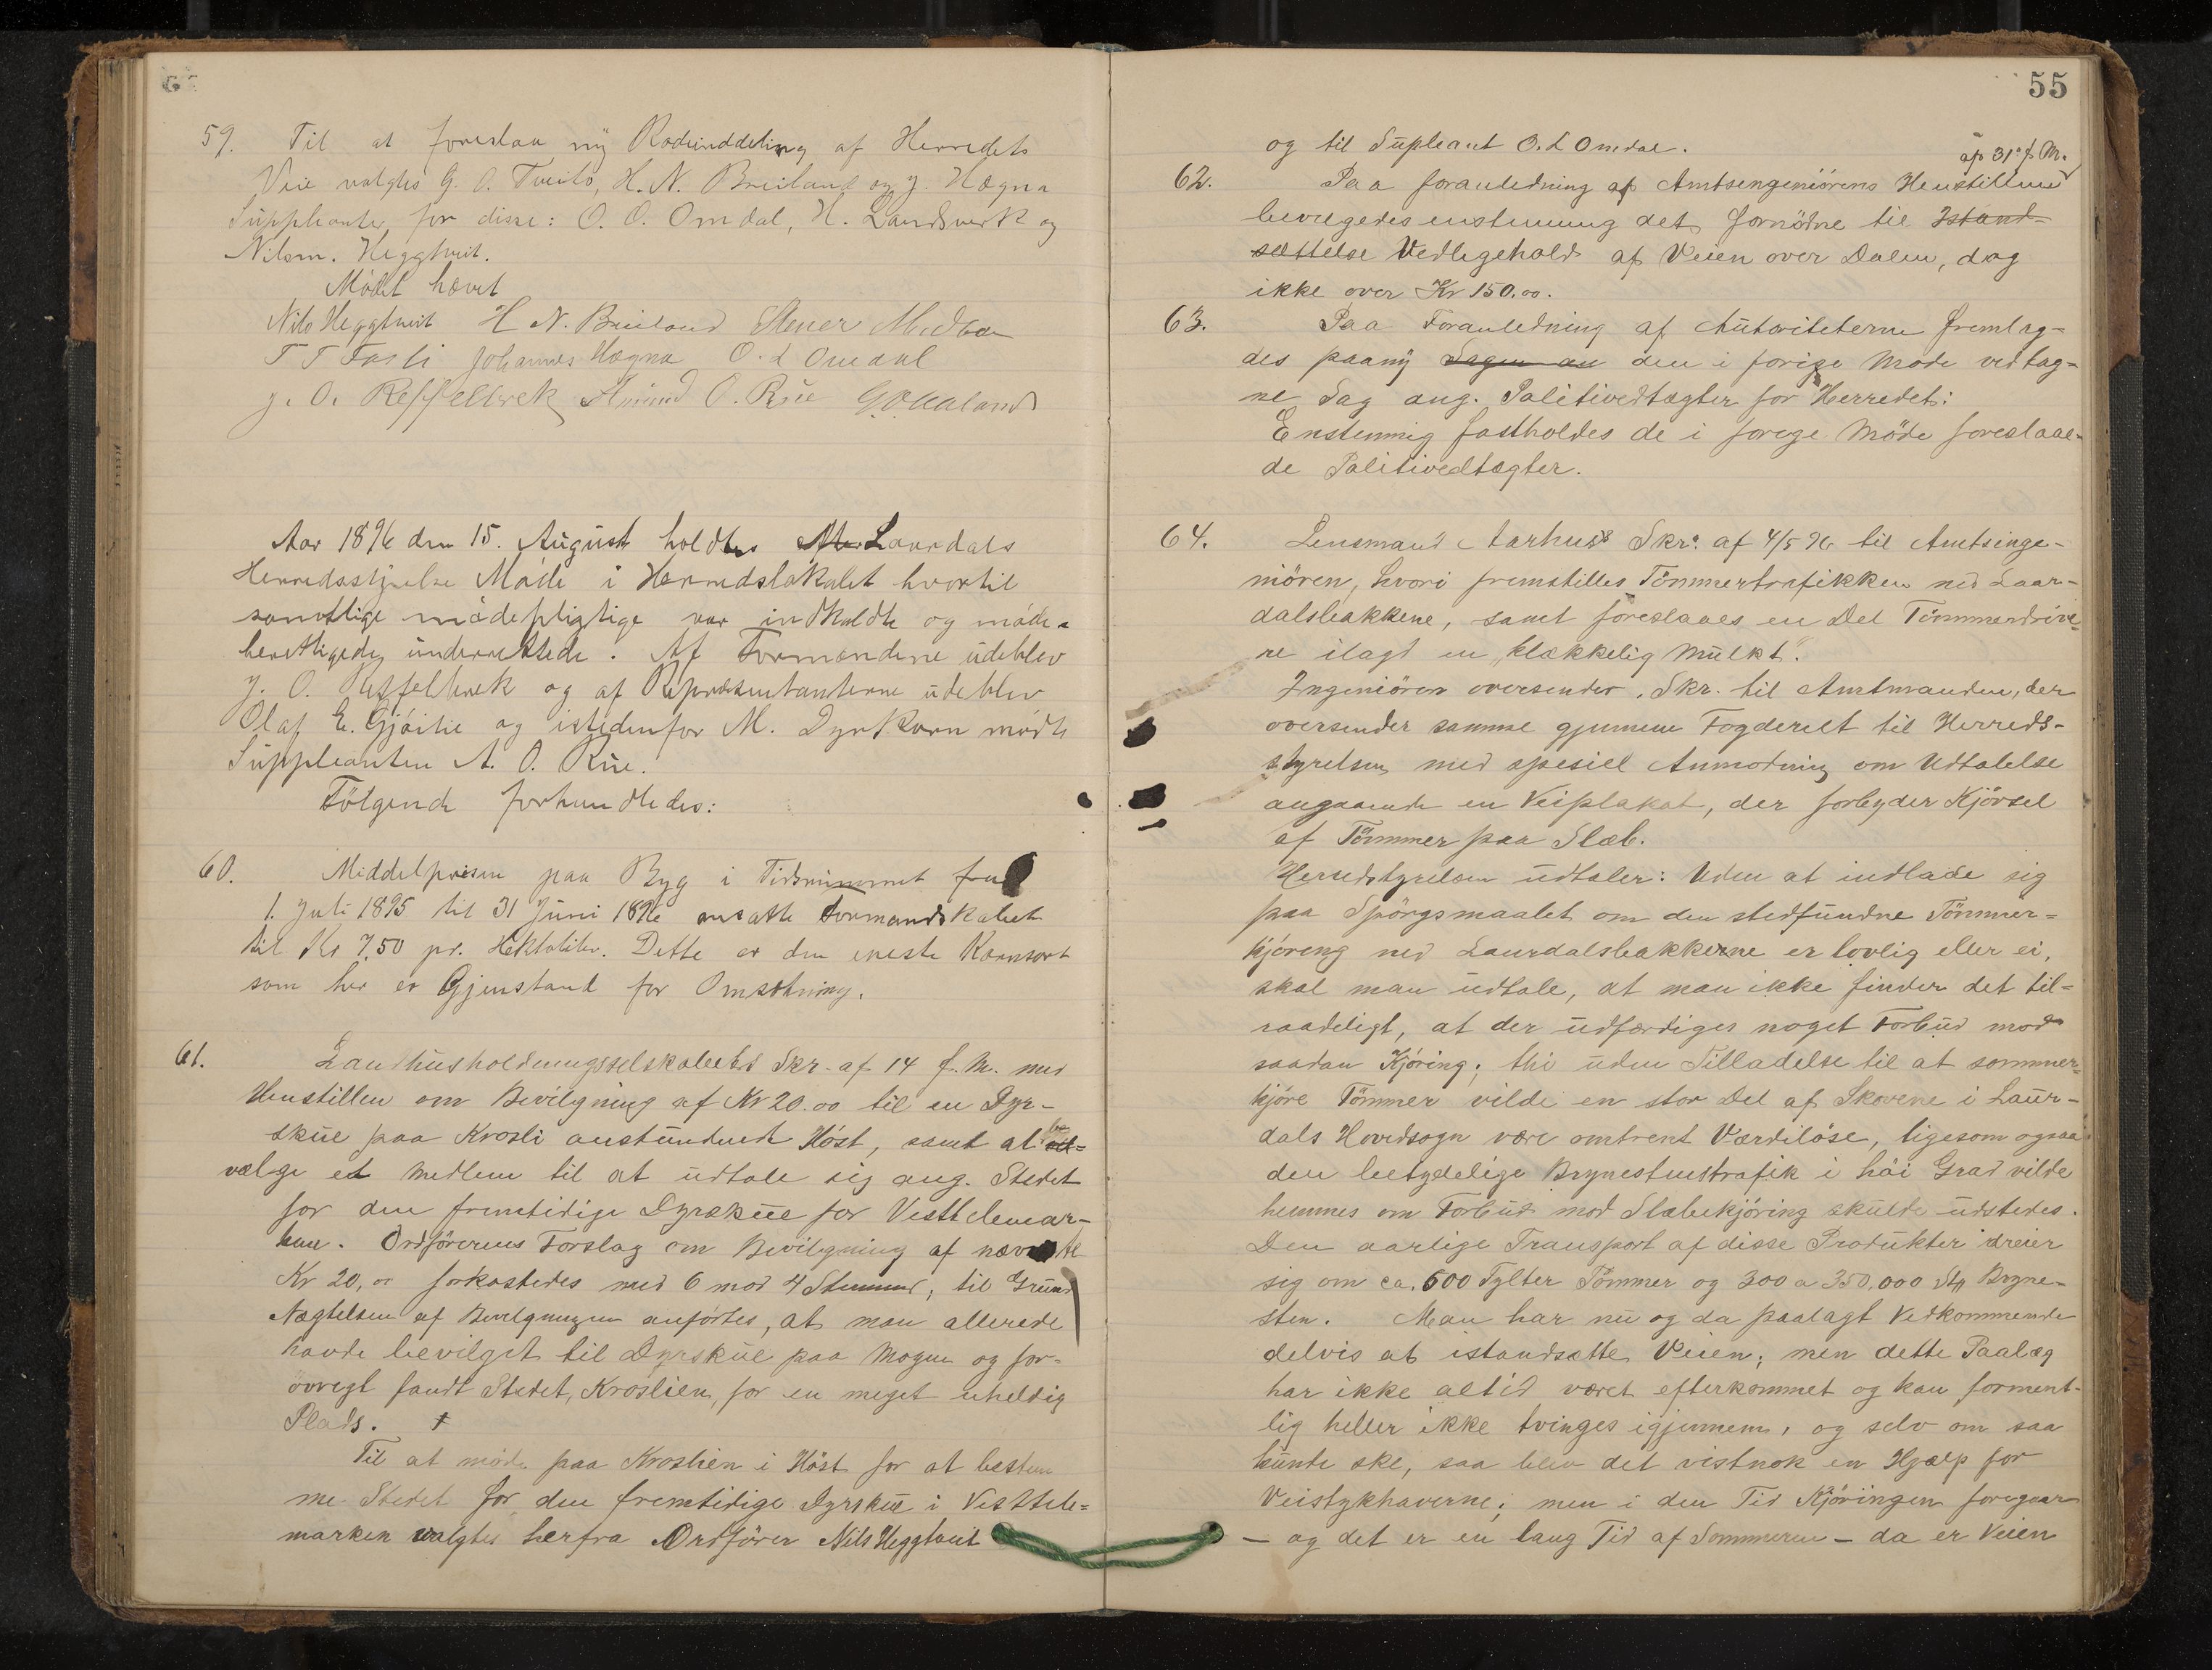 59. Til at foreslaa ny Rodeinddeling af Herredets
Veie valgtes G. O. Tveito, H. N. Breiland og J. Hægna
Suppleanter for disse: O. O. Omdal, H. Landsverk og
Nilsm. Heggtveit.
Mödet hævet
Nils Heggtveit H N. Breiland Stener Midbøe
T T Fosli Johannes Hægna O. L Omdal
J. O. Reffelbrek Amund O. Rue G. O. Haland
Aar 1896 den 15. August holdtes Laurdals
Herredsstyrelse Möde i Herredslokalet hvortil
samtlige mödepligtige var indkaldte og möde-
berettigede underrettede. Af Formændene udeblev
J. O. Reffelbrek og af Repræsentanterne udeblev
Olaf E. Gjöitie og istedenfor M. Dyrkorn mödte
Suppleanten A. O. Rue.
Fölgende forhandledes:
60. Middelprisen paa Byg i Tidsrummet fra
1. Juli 1895 til 31 Juni 1896 ansatte Formandskabet
til Kr 7,50 pr. Hektoliter. Dette er den eneste Kornsort
som her er Gjenstand for Omsætning.
61. Landhusholdningsselskabets Skr. af 14 f. M. med
Henstillen om Bevilgning af Kr 20.00 til en Dyr-
skue paa Krosli anstundende Höst, samt at
vælge et Medlem til at udtale sig ang. Stedet
for den fremtidige Dyrskue for Vesttelemar-
ken. Ordförerens Forslag om Bevilgning af nævnte
Kr 20,00 forkastedes med 6 mod 4 Stemmer; til Grund
Nægtelsen af Bevilgningen anförtes, at man allerede
havde bevilget til Dyrskue paa Mogen og for-
övrigt fandt Stedet, Kroslien, for en meget uheldig
Plads. +
Til at möde paa Kroslien i Höst for at bestem
me Stedet for den fremtidige Dyrskue i Vesttele-
marken valgtes herfra Ordförer Nils Heggtveit
55
og til Supleant O. L Omdal.
af 31' f. M.
62. Paa foranledning af Amtsengeniörens Henstillen
bevilgedes enstemmig det fornödne til Istand-
sættelse Vedligehold af Veien over Dalen, dog
ikke over Kr 150.00.
63. Paa Foranledning af Autoriteterne fremlag-
des paany Sagen an den i forige Möde vedtag-
ne Sag ang. Politivedtægter for Herredet:
Enstemmig fastholdes de i forige Möde foreslaae-
de Politivedtægter.
64. Lensmand Aarhus's Skr. af 4/5 96 til Amtsinge-
niören, hvori fremstilles Tömmertrafikken ned Laur-
dalsbakkene, samt foreslaaes en Del Tömmerdrive-
re ilagt en „klækkelig Mulkt".
Ingeniören oversender Skr. til Amtmanden, der
oversender samme gjennem Fogderiet til Herreds-
styrelsen med spesiel Anmodning om Udtalelse
angaaende en Veiplakat, der forbyder Kjörsel
af Tömmer paa Slæb.
Herredstyrelsen udtaler: Uden at indlade sig
paa Spörgsmaalet om den stedfundne Tömmer-
kjöring ned Laurdalsbakkerne er lovlig eller ei,
skal man udtale, at man ikke finder det til-
raadeligt, at der udfærdiges noget Forbud mod
saadan Kjöring; thi uden Tilladelse til at sommer-
kjöre Tömmer vilde en stor Del af Skovene i Laur-
dals Hovedsogn være omtrent Værdilöse, ligesom ogsaa
den betydelige Brynestenstrafik i höi Grad vilde
hemmes om Forbud mod Slæbekjöring skulde udstedes.
Den aarlige Transport af disse Produkter dreier
sig om ca. 600 Tylter Tömmer og 300 a 350.000 Stk Bryne-
sten. Man har nu og da paalagt Vedkommende
delvis at istandsætte Veien; men dette Paalæg
har ikke altid været efterkommet og kan forment-
lig heller ikke tvinges igjennem, og selv om saa
kunde ske, saa blev det vistnok en Hjælp for
Veistykhaverne; men i den Tid Kjöringen foregaar
– og det er en lang Tid af Sommeren – da er Veien